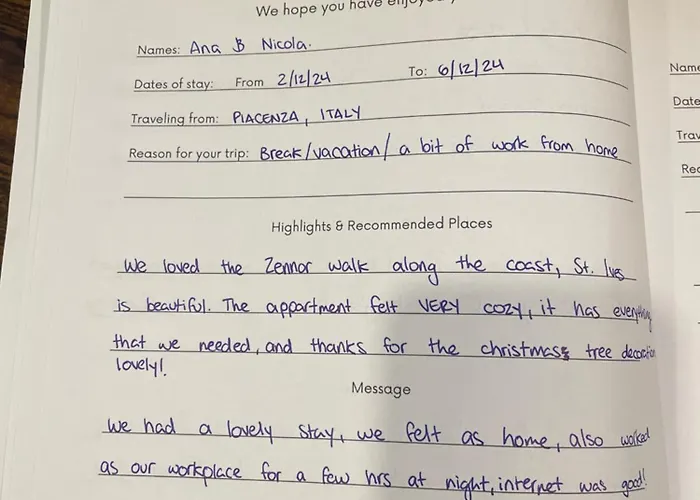 We hope you have enjoy
Names: Ana B Nicola.
Dates of stay: From 2/12/24 To: 6/12/24
Traveling from: PIACENZA, ITALY
Reason for your trip: Break/vacation/ a bit of work from home
Highlights & Recommended Places
We loved the Zennor walk along the coast, St. Ives
is beautiful. The appartment felt VERY COZY, it has everything
that we needed, and thanks for the christmass tree decoration
lovely!
Message
We had a lovely stay, we felt as home, also worked
as our workplace for a few hrs at night, internet was good!
Name
Date
Trav
Rea